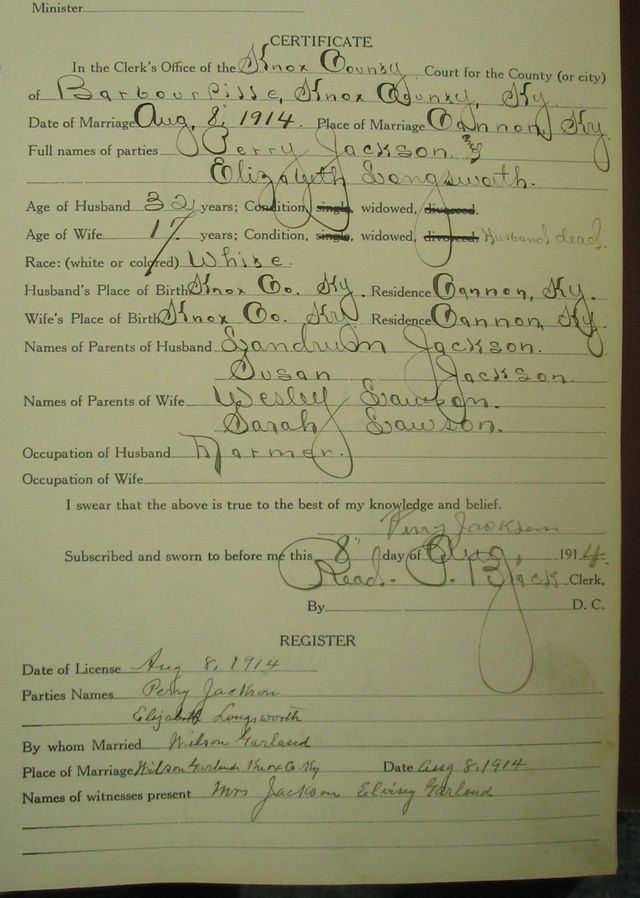 Minister
CERTIFICATE
In the Clerk's Office of the Knox County Court for the County (or city)
of Barbourville, Knox County, Ky.
Date of Marriage Aug. 8, 1914. Place of Marriage Cannon, Ky.
Full names of parties Perry Jackson. and
Elizabeth Longsworth.
Age of Husband 32 years; Condition, single, widowed, divorced.
Age of Wife 17 years; Condition, single, widowed, divorced. Husband dead.
Race: (white or colored) White.
Husband's Place of Birth Knox Co. Ky. Residence Cannon, Ky.
Wife's Place of Birth Knox Co. Ky. Residence Cannon, Ky.
Names of Parents of Husband Landrum Jackson.
Susan Jackson
Names of Parents of Wife Wesley Lawson.
Sarah Lawson.
Occupation of Husband Farmer.
Occupation of Wife
I swear that the above is true to the best of my knowledge and belief.
Perry Jackson
Subscribed and sworn to before me this 8" day of Aug, 1914.
Read. P. Black Clerk,
By D. C.
REGISTER
Date of License Aug 8, 1914
Parties Names Perry Jackson
Elizabeth Longsworth
By whom Married Wilson Garland
Place of Marriage Wilson Garlands Knox Co Ky Date Aug 8, 1914
Names of witnesses present Mrs Jackson Elvisey Garland